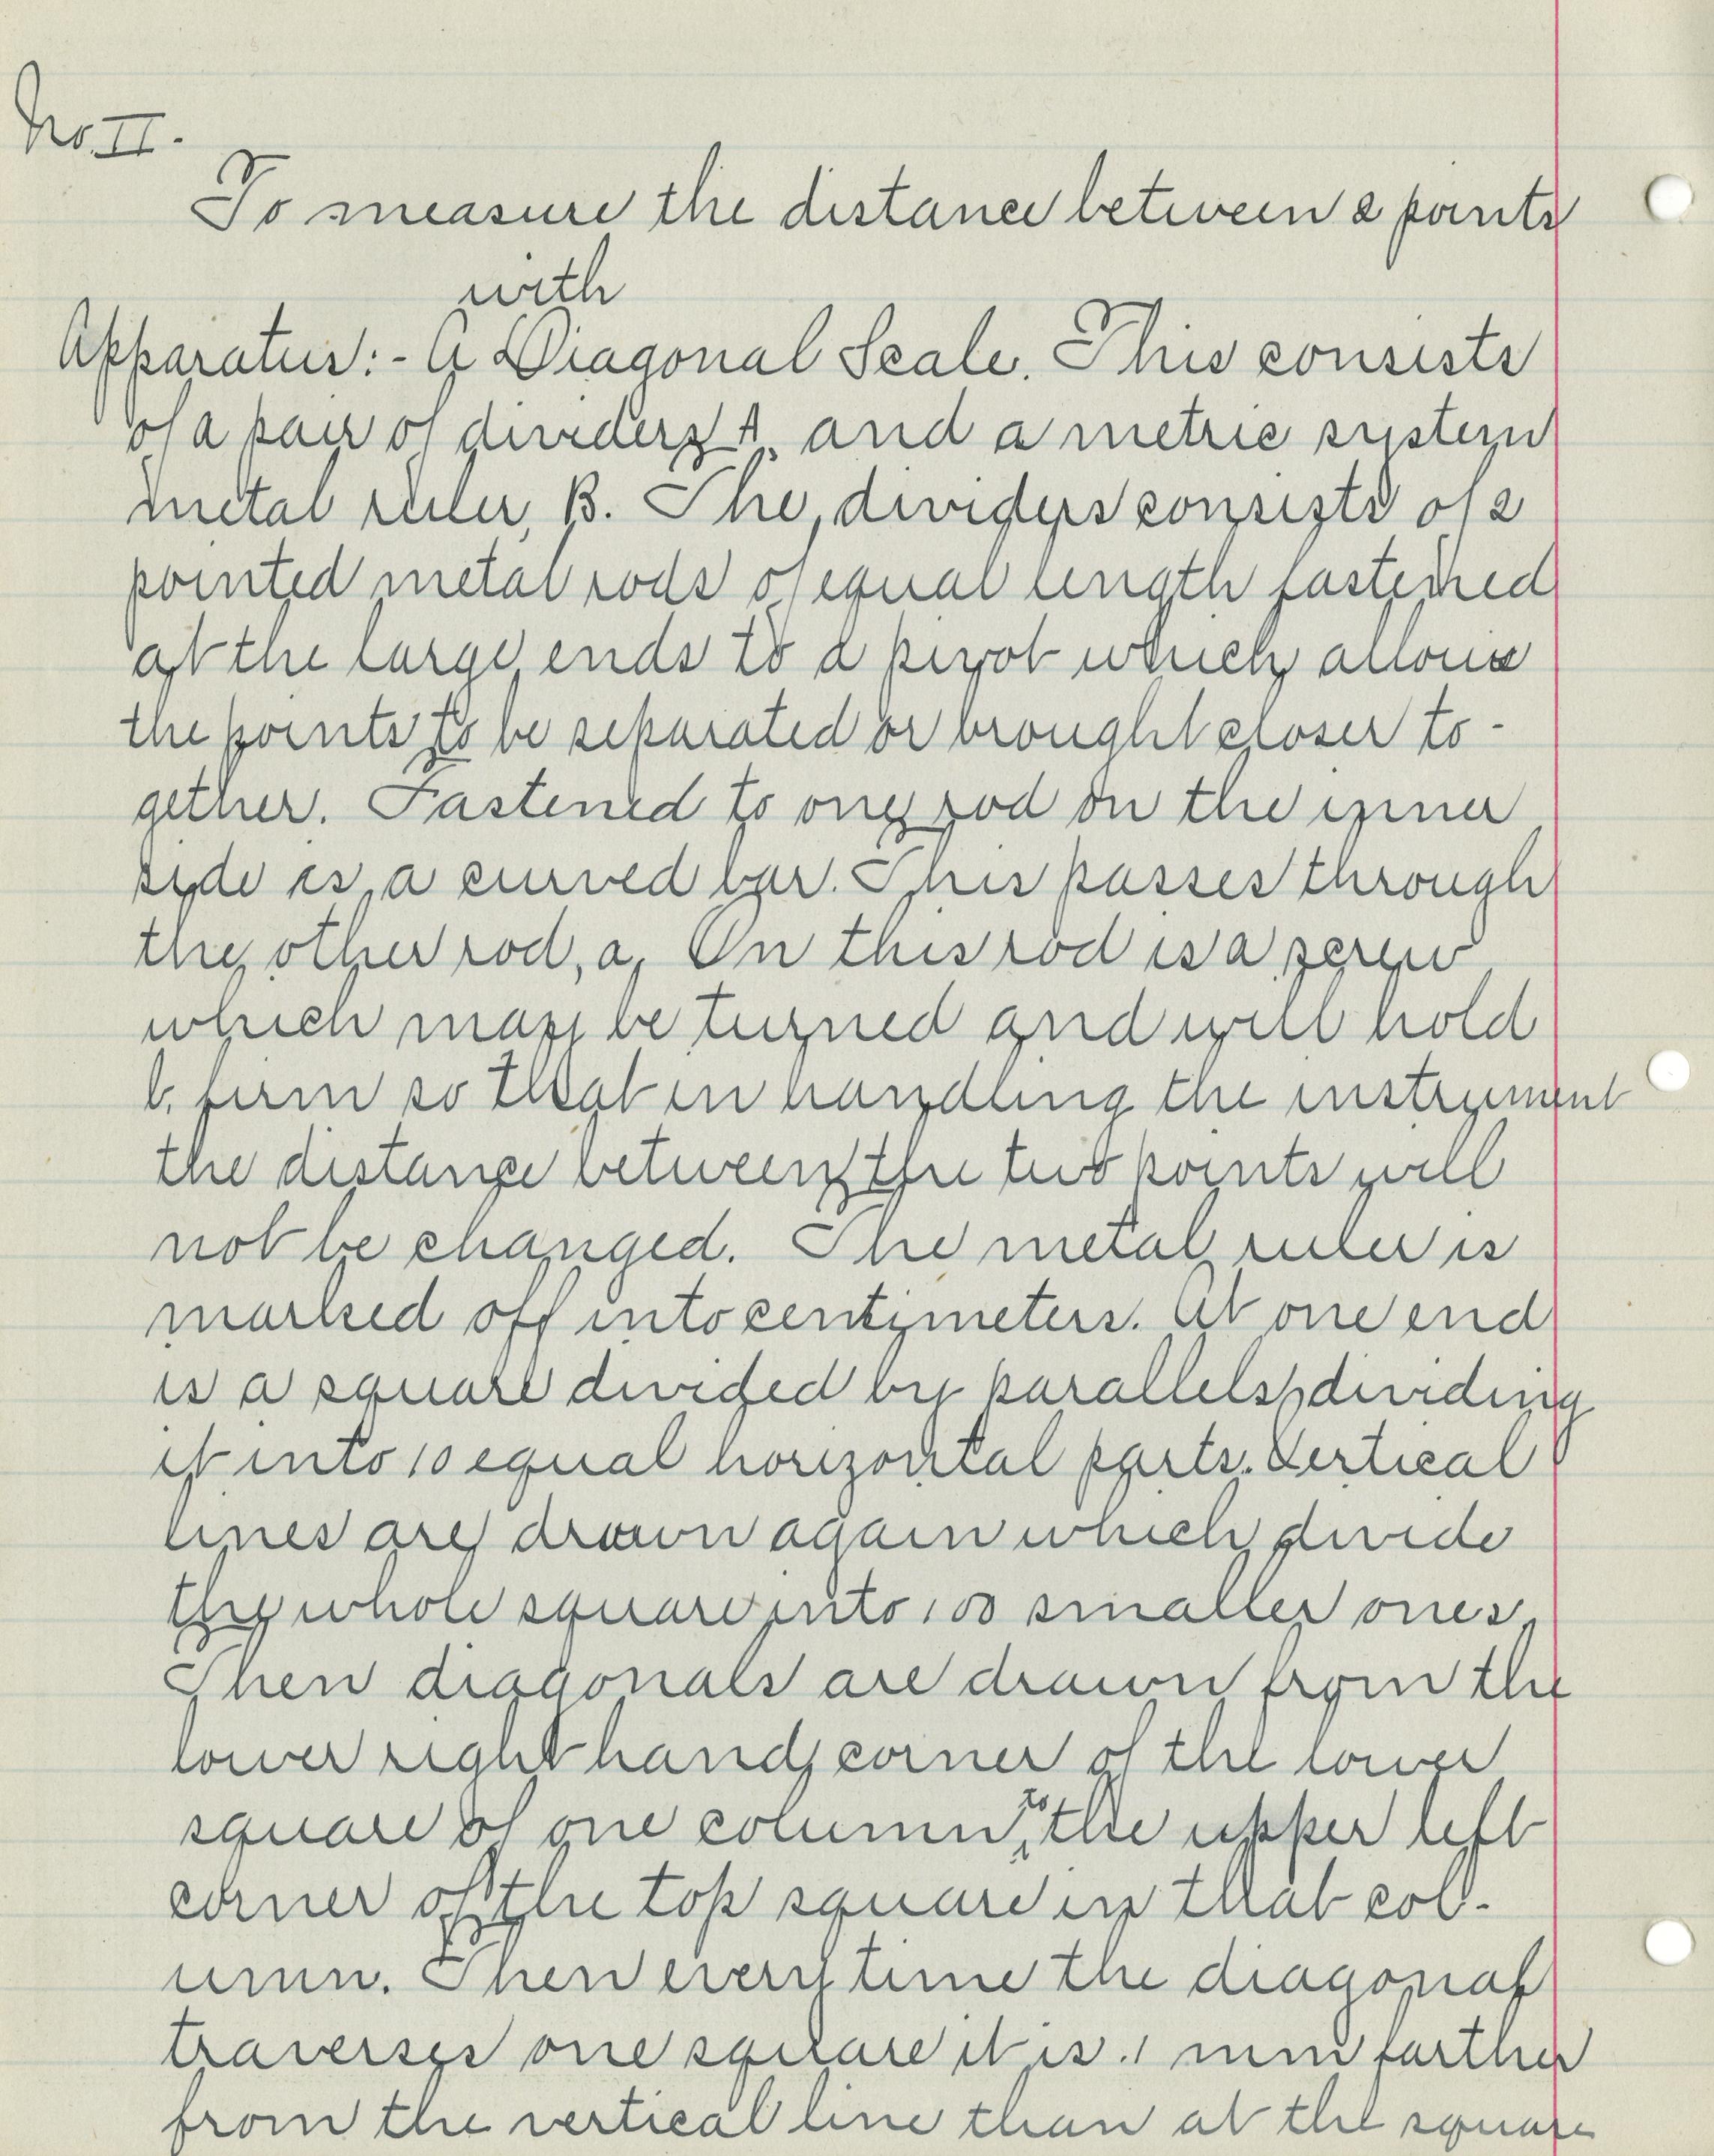 No. II.
To measure the distance between 2 points
with
Apparatus:- A Diagonal Scale. This consists
of a pair of dividers, A, and a metric system
metal ruler, B. The dividers consists of 2
pointed metal rods of equal length fastened
at the large ends to a pivot which allows
the points to be separated or brought closer to-
gether. Fastened to one rod on the inner
side is a curved bar. This passes through
the other rod, a. On this rod is a screw
which may be turned and will hold
b. firm so that in handling the instrument
the distance between the two points will
not be changed. The metal ruler is
marked off into centimeters. At one end
is a square divided by parallels, dividing
it into 10 equal horizontal parts. Vertical
lines are drawn again which divide
the whole square into 100 smaller ones.
Then diagonals are drawn from the
lower right hand corner of the lower
square of one column, to the upper left
corner of the top square in that col-
umn. Then every time the diagonal
traverses one square it is .1 mm farther
from the vertical line than at the square